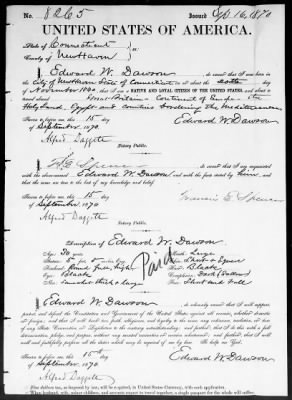 No. 8265 Issued Sept 16, 1870
UNITED STATES OF AMERICA.
State of Connecticut
County of New Haven } ss:
I, Edward W. Dawson do swear that I was born in
the City of New Haven State of Connecticut on or about the
of November 1840 that I am a NATIVE AND LOYAL CITIZEN OF THE UNITED STATES, and about to
travel abroad Great Britain - Continent of Europe - the
Holy Land, Egypt and countries bordering the Mediterranean
Sworn to before me this 15 day Edward W. Dawson
of September 1870
Alfred Daggett
Notary Public.
I, Spencer do swear that I am acquainted
with the above named Edward W. Dawson and with the facts stated by him, and
that the same are true to the best of my knowledge and belief.
Sworn to before me this 15 day Spencer
of September 1870
Alfred Daggett
Notary Public.
Description of Edward W. Dawson
Age: 30 years Mouth: Large
Stature: 5 ft. 8 inches Chin: Short & Square
Forehead: Round, full, high Hair: Black
Eyes: Complexion: Dark
Nose: Somewhat thick & large Face: Short and full
Paid
I, Edward W. Dawson do solemnly swear that I will support,
protect, and defend the Constitution and Government of the United States against all enemies, whether domestic
or foreign; and that I will bear true faith, allegiance, and loyalty to the same, any ordinance, resolution, or law
of any State Convention or Legislature to the contrary notwithstanding; and further, that I do this with a full
determination, pledge, and purpose, without any mental reservation or evasion whatsoever; and further, that I will
well and faithfully perform all the duties which may be required of me by law. So help me God.
Sworn to before me this 15 day Edward W. Dawson
of September 1870
Alfred Daggett
Notary Public.